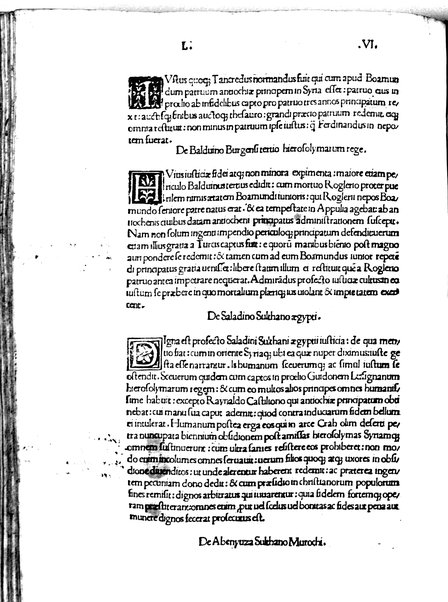 L. .VI.
IVstus quoq; Tancredus normandus fuit qui cum apud Boamun
dum patruum antiochiæ principem in Syria esset: patruo eius in
prœlio ab infidelibus capto pro patruo tres annos principatum re
xit: auctisq; finibus auctoq; thesauro: grandi præcio patruum redemit. eiq;
omnia restituit: non minus in patruum ipse iustus: q̃ Ferdinandus in nepo
tem fuerat.
De Balduino Burgensi tertio hierosolymarum rege.
HVius iusticiæ fidei atq; non minora exprimenta: maiore etiam pe
riculo Balduinus tertius edidit: cum mortuo Rogerio propter pue
rilem nimis ætatem Boamundi iunioris: qui Rogerii nepos Boa
mundo seniore patre natus erat. & ea tempestate in Appulia agebat ab an
tiochenis ciuibus datam antiocheni principatus administrationem suscepit.
Nam non solum ingenti impendio periculoq; principatum defendit uerum
etiam illius gratia a Turcis captus fuit: e quorũ manibus biẽnio post magno
auri pondere se redemit: & tamen cum ad eum Boamundus iunior repetẽ
di principatus gratia uenisset: libere statum illum ei restituit quẽ a Rogerio
patruo antea impetrare nequerat. Admirãdus profecto iusticiæ cultus in ea
iustum se præbere in quo mortalium pleriq; ius uiolant & impietatem exer
cent.
De Saladino Sulthano ægypti.
DIgna est profecto Saladini Sulthani ægyptii iusticia: de qua men
tio fiat: cum in oriente Syriaq; ubi ea quæ nuper diximus iuste ge
sta esse narrantur. Is humanum seuerumq; ac simul iustum se
ostendit. Seuerum quidem cum captos in prœlio Guidonem Lesignanum
hierosolymarum regem: & cum eo multos alios principes omnes humanis
sime habuit: excepto Raynaldo Castiliono qui antiochiæ principatum obti
nebat: cui manu sua caput ademit: quod contra induciarum fidem bellum
ei intulerat. Humanum postea erga eos qui in arce Crath olim deserti pe
tra nuncupata biennium obsidionem post amissas hierosolymas Syriamq;
omnem sustinuerunt: cum ultra fames resistere eos prohiberet: non mo
do enim incolumes omnes seruauit: uerum filios quoq; atq; uxores in obsi
dione diuenditos: ut unde alerentur haberent redemit: ac præterea ingen
tem pecuniam dono dedit: & cum præsidio in christianorum populorum
fines remisit: dignos arbitratus qui iuuarentur: quia fidelem fortemq; ope
ram præstiterant: omnes enim, put uel scelus uel bonitas ac fides aut pena aut
munere dignos fecerat prosecutus est.
De Abenyuza Sulthano Murochi.